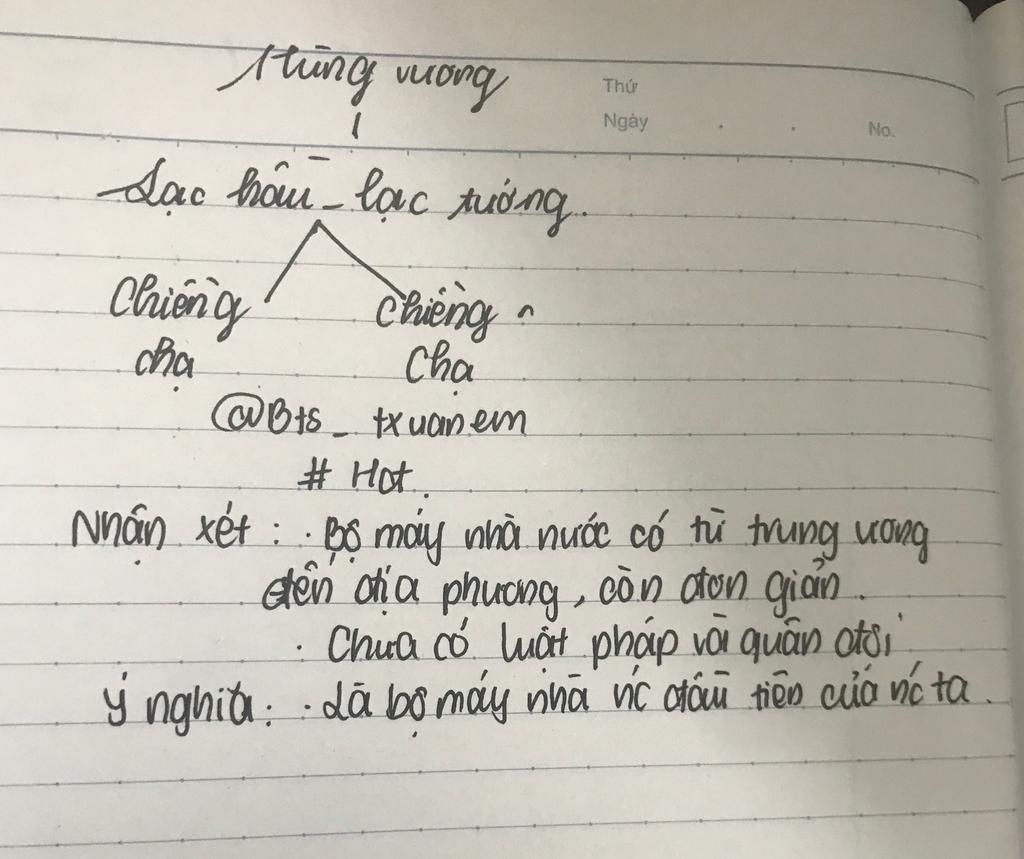 Hùng vương
Thứ
Ngày . . No.
Lạc hầu - lạc tướng.
Chiềng Chiềng
chạ Chạ
@Bts_txuanem
# Hot.
Nhận xét: . Bộ máy nhà nước có từ trung ương
đến địa phương, còn đơn giản.
. Chưa có luật pháp và quân đội
Ý nghĩa: . Là bộ máy nhà nc đầu tiên của nc ta.